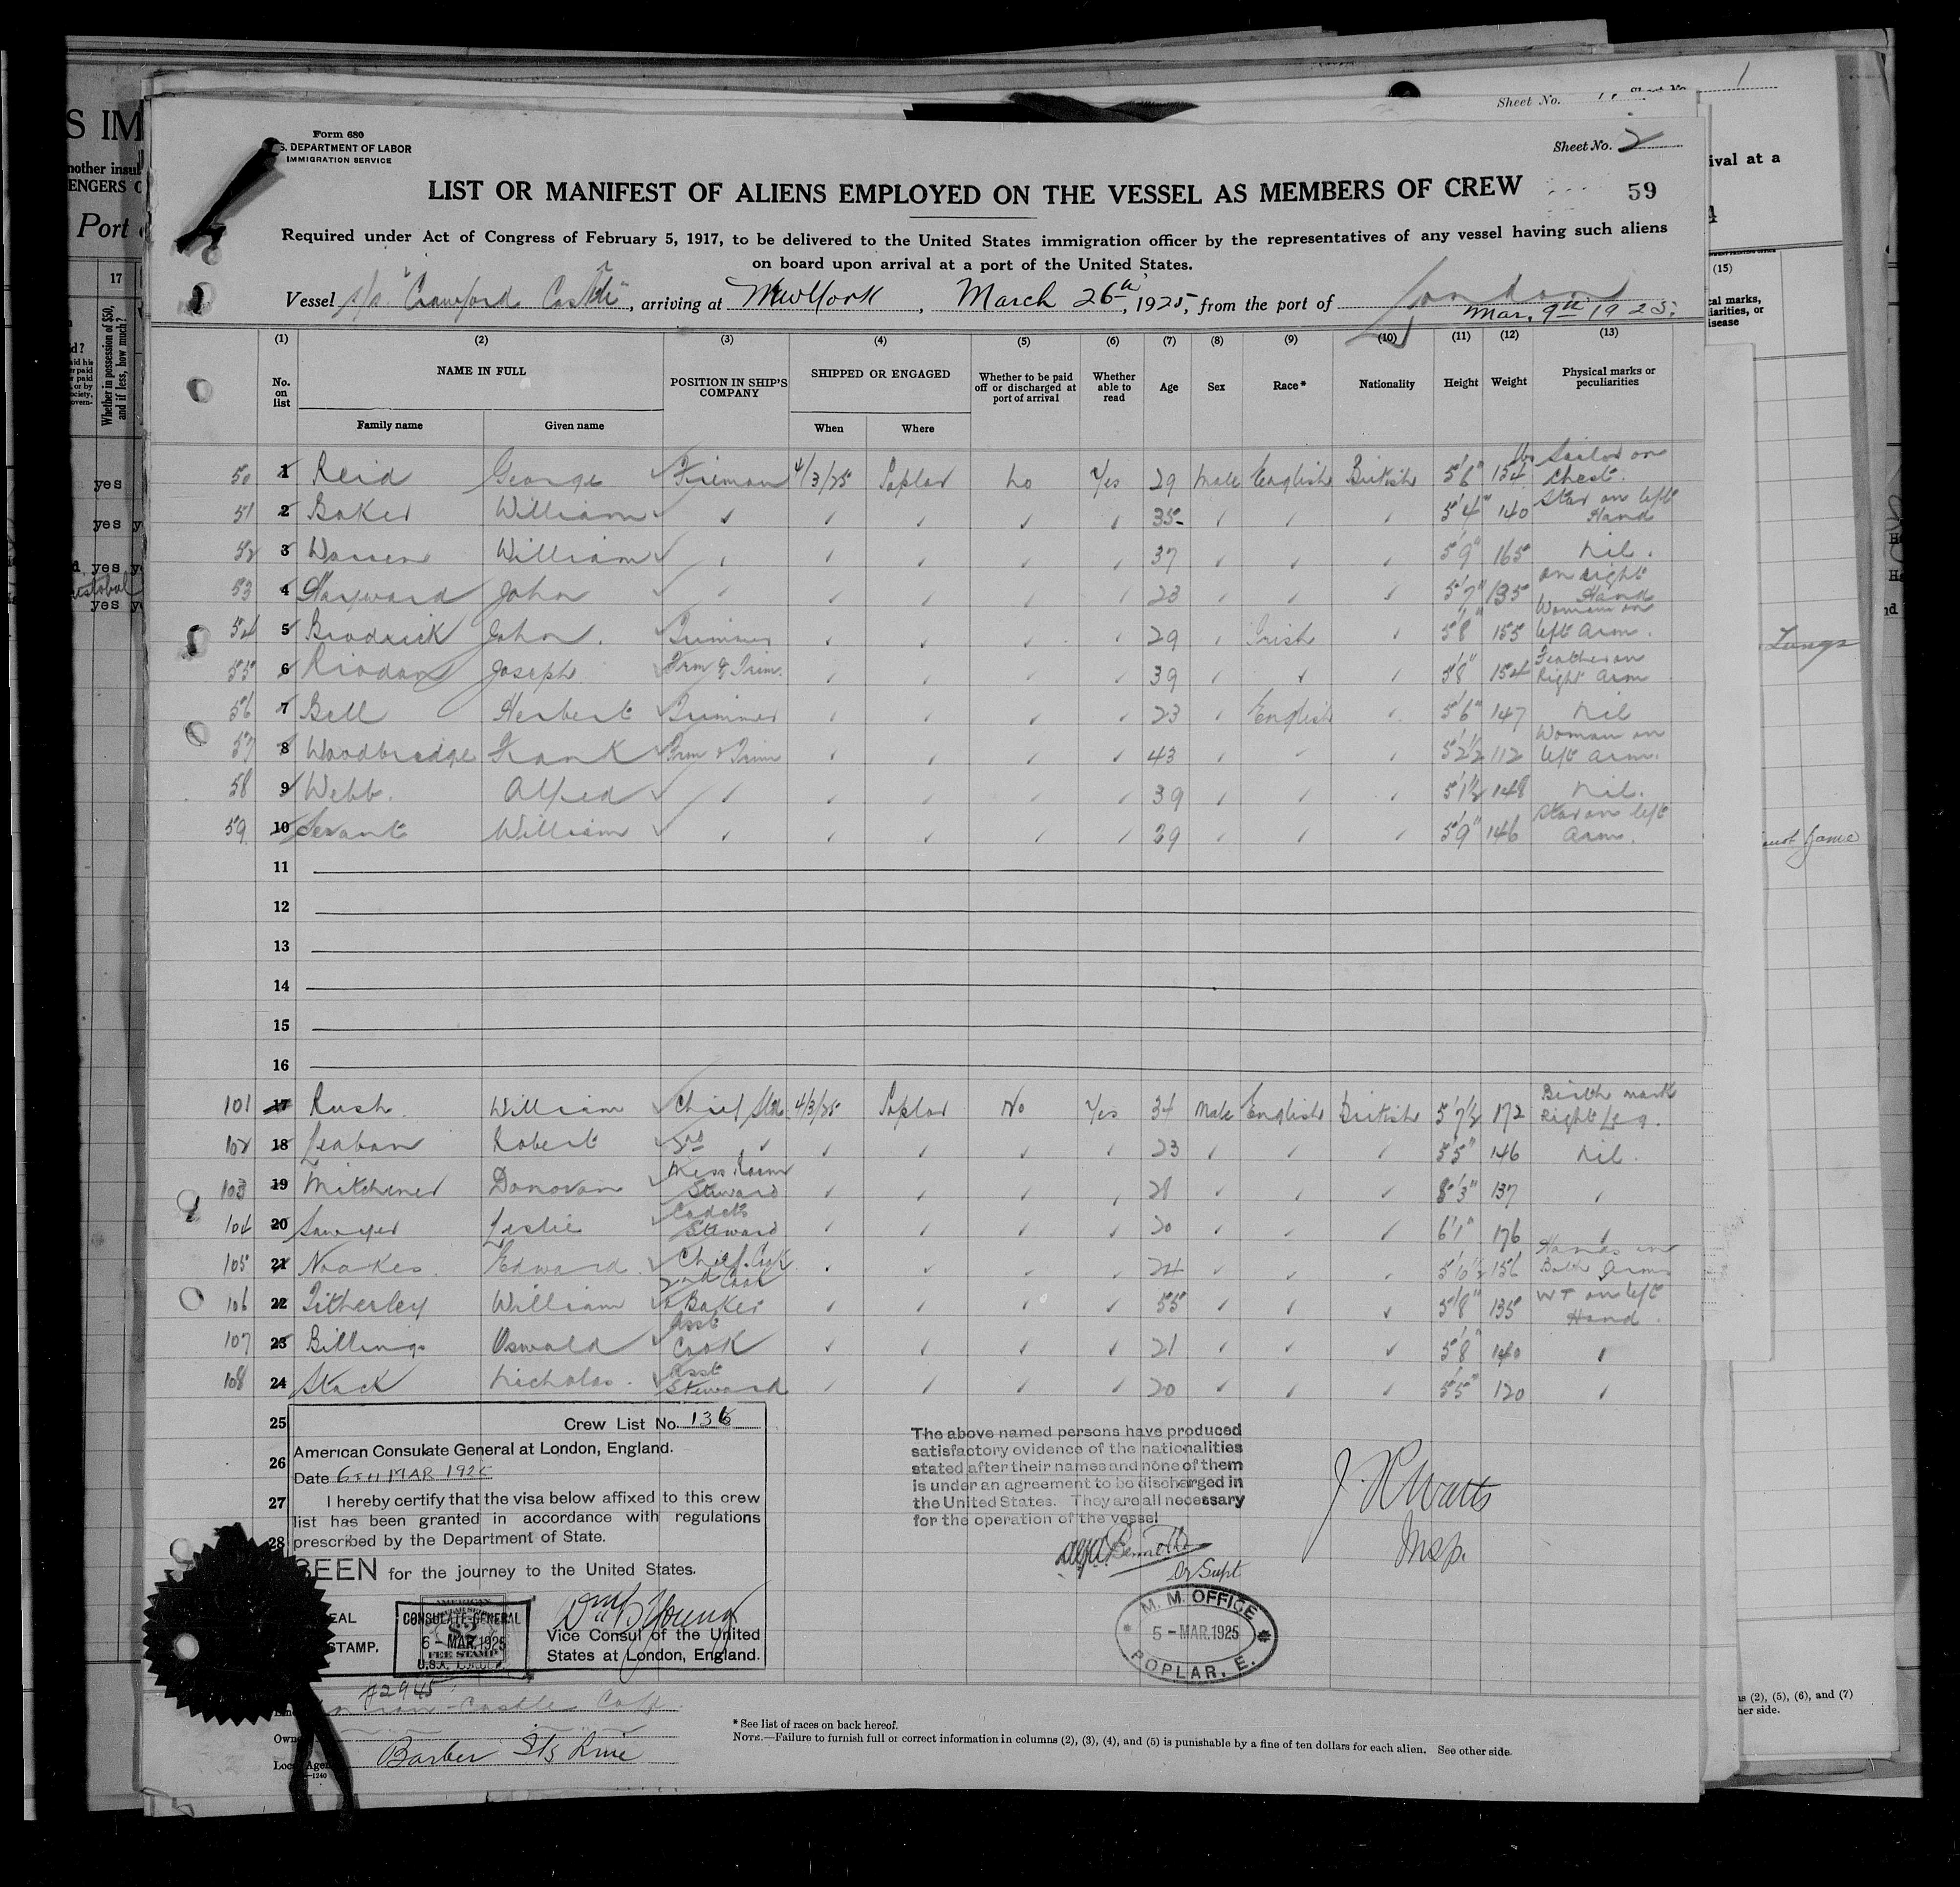 Sheet No.
1
Form 680
S. DEPARTMENT OF LABOR
IMMIGRATION SERVICE
Sheet No. 2
LIST OR MANIFEST OF ALIENS EMPLOYED ON THE VESSEL AS MEMBERS OF CREW
59
Required under Act of Congress of February 5, 1917, to be delivered to the United States immigration officer by the representatives of any vessel having such aliens
on board upon arrival at a port of the United States.
Vessel s/s "Crawford Castle", arriving at New York, March 26th, 1925, from the port of London
Mar. 9th 1925.
(1) (2) (3) (4) (5) (6) (7) (8) (9) (10) (11) (12) (13)
No. on list NAME IN FULL POSITION IN SHIP'S COMPANY SHIPPED OR ENGAGED Whether to be paid off or discharged at port of arrival Whether able to read Age Sex Race* Nationality Height Weight Physical marks or peculiarities
Family name Given name When Where
50 1 Reid George Fireman 4/3/25 Poplar No Yes 29 Male English British 5'6" 154 lbs Sailor on Chest.
51 2 Baker William ✓ ✓ ✓ ✓ ✓ 35 ✓ ✓ ✓ 5'4" 140 Star on left Hand
52 3 Warren William ✓ ✓ ✓ ✓ ✓ 37 ✓ ✓ ✓ 5'9" 165 Nil.
53 4 Hayward John ✓ ✓ ✓ ✓ ✓ 23 ✓ ✓ ✓ 5'7" 135 on right Hand
54 5 Brodrick John. Trimmer ✓ ✓ ✓ ✓ 29 ✓ Irish ✓ 5'8" 155 Woman on left arm.
55 6 Riodan Joseph Frm & Trim. ✓ ✓ ✓ ✓ 39 ✓ ✓ ✓ 5'8" 154 Feather on Right arm
56 7 Bell Herbert Trimmer ✓ ✓ ✓ ✓ 23 ✓ English ✓ 5'6" 147 Nil
57 8 Woodbridge Frank Frm & Trim ✓ ✓ ✓ ✓ 43 ✓ ✓ ✓ 5'2½ 112 Woman on left arm.
58 9 Webb. Alfred ✓ ✓ ✓ ✓ ✓ 39 ✓ ✓ ✓ 5'1½ 148 Nil.
59 10 Servant William ✓ ✓ ✓ ✓ ✓ 39 ✓ ✓ ✓ 5'9" 146 Star on left arm.
11
12
13
14
15
16
101 17 Rush. William Chief Std 4/3/25 Poplar No Yes 34 Male English British 5'7½ 172 Birth mark Right Leg.
102 18 Leaban Robert 2nd ✓ ✓ ✓ ✓ ✓ 23 ✓ ✓ ✓ 5'5" 146 Nil.
103 19 Mitchener Donovan Mess Room Steward ✓ ✓ ✓ ✓ 28 ✓ ✓ ✓ 5'3" 137 ✓
104 20 Sawyer Leslie Cadets Steward ✓ ✓ ✓ ✓ 20 ✓ ✓ ✓ 6'1" 176 ✓
105 21 Noakes. Edward. Chief Cook ✓ ✓ ✓ ✓ 24 ✓ ✓ ✓ 5'10½ 156 Hands on Both Arms
106 22 Titherley William 2nd Cook & Baker ✓ ✓ ✓ ✓ 55 ✓ ✓ ✓ 5'8" 135 WT on left Hand.
107 23 Billings Oswald Asst Cook ✓ ✓ ✓ ✓ 21 ✓ ✓ ✓ 5'8" 140 ✓
108 24 Stack Nicholas. Asst Steward ✓ ✓ ✓ ✓ 20 ✓ ✓ ✓ 5'5" 120 ✓
25
26
27
28
Crew List No. 136
American Consulate General at London, England.
Date 6TH MAR 1925
I hereby certify that the visa below affixed to this crew
list has been granted in accordance with regulations
prescribed by the Department of State.
SEEN for the journey to the United States.
EAL
STAMP.
AMERICAN
CONSULATE-GENERAL
$2
6 - MAR.1925
FEE STAMP
Wm B Young
Vice Consul of the United
States at London, England.
The above named persons have produced
satisfactory evidence of the nationalities
stated after their names and none of them
is under an agreement to be discharged in
the United States. They are all necessary
for the operation of the vessel
Bennett
Dy Supt
M. M. OFFICE
5 - MAR.1925
POPLAR, E.
J. R. Watts
Insp.
Castle
Barber SS Line
*See list of races on back hereof.
NOTE.—Failure to furnish full or correct information in columns (2), (3), (4), and (5) is punishable by a fine of ten dollars for each alien. See other side.
S IM
nother insul
ENGERS
Port
17
Whether in possession of $50, and if less, how much?
yes
yes
yes
yes
ival at a
(15)
Lungs
s (2), (5), (6), and (7)
her side.